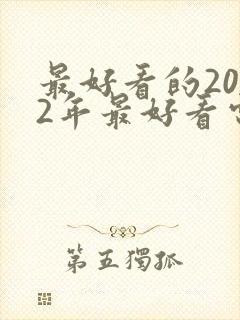 最好看的20
2年最好看
第五獨孤